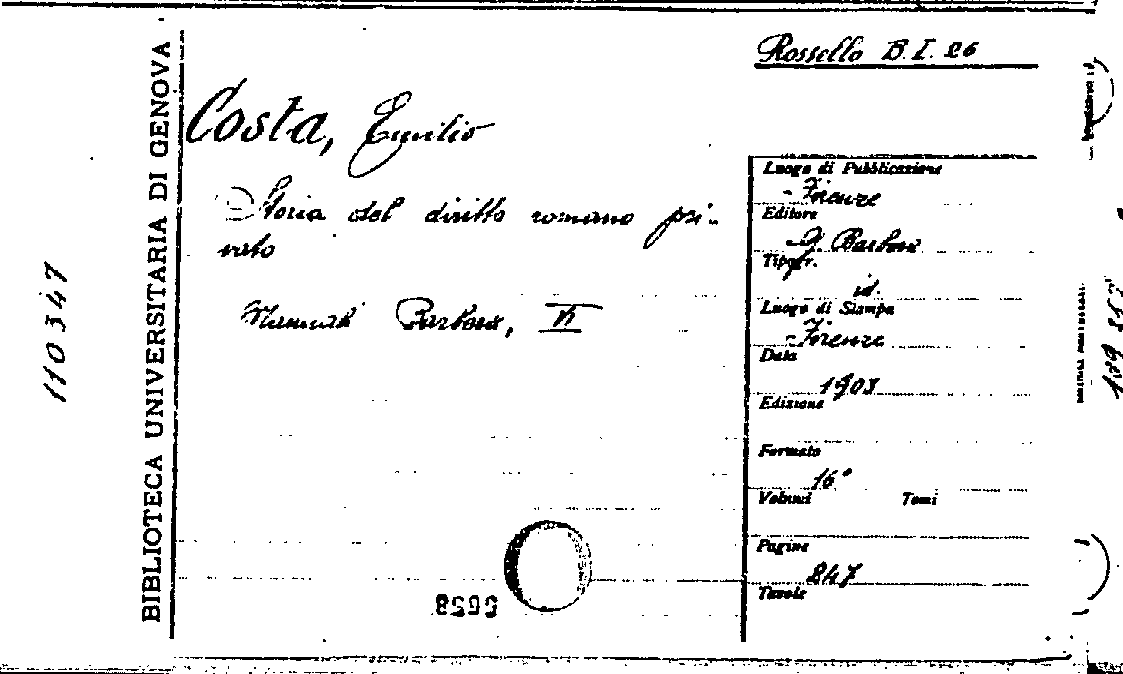 Rossello B.I. 26
BIBLIOTECA UNIVERSITARIA DI GENOVA
110347
Costa, Emilio
Storia del diritto romano pri-
vato
Manuali Barbera, VI
Luogo di Pubblicazione
Firenze
Editore
G. Barbera
Tipogr.
id.
Luogo di Stampa
Firenze
Data
1903
Edizione
Formato
16°
Volumi Tomi
Pagine
247
Tavole